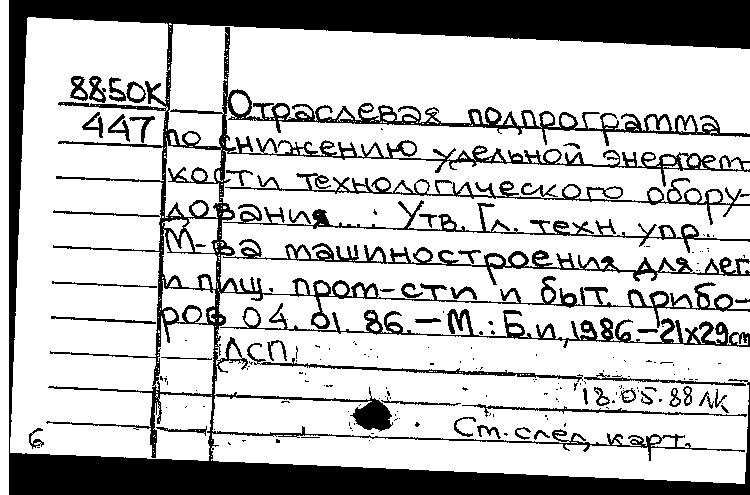 8850К
447
Отраслевая подпрограмма
по снижению удельной энергоем-
кости технологического обору-
дования...: Утв. Гл. техн. упр.
М-ва машиностроения для лег.
и пищ. пром-сти и быт. прибо-
ров 04.01.86.-М.: Б.и., 1986.-21х29см
ДСП.
18.05.88 ЛК
См. след. карт.
6